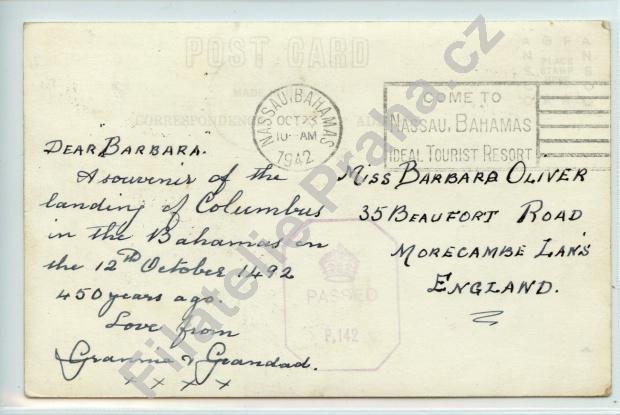 POST CARD
CORRESPONDENCE
NASSAU, BAHAMAS
OCT 23
10-AM
1942
COME TO
NASSAU, BAHAMAS
IDEAL TOURIST RESORT
DEAR BARBARA.
A souvenir of the
landing of Columbus
in the Bahamas on
the 12th October 1492
450 years ago.
Love from
Granma & Grandad.
x x x x
MISS BARBARA OLIVER
35 BEAUFORT ROAD
MORECAMBE LANS
ENGLAND.
PASSED
P.142
Filatelie-Praha.cz